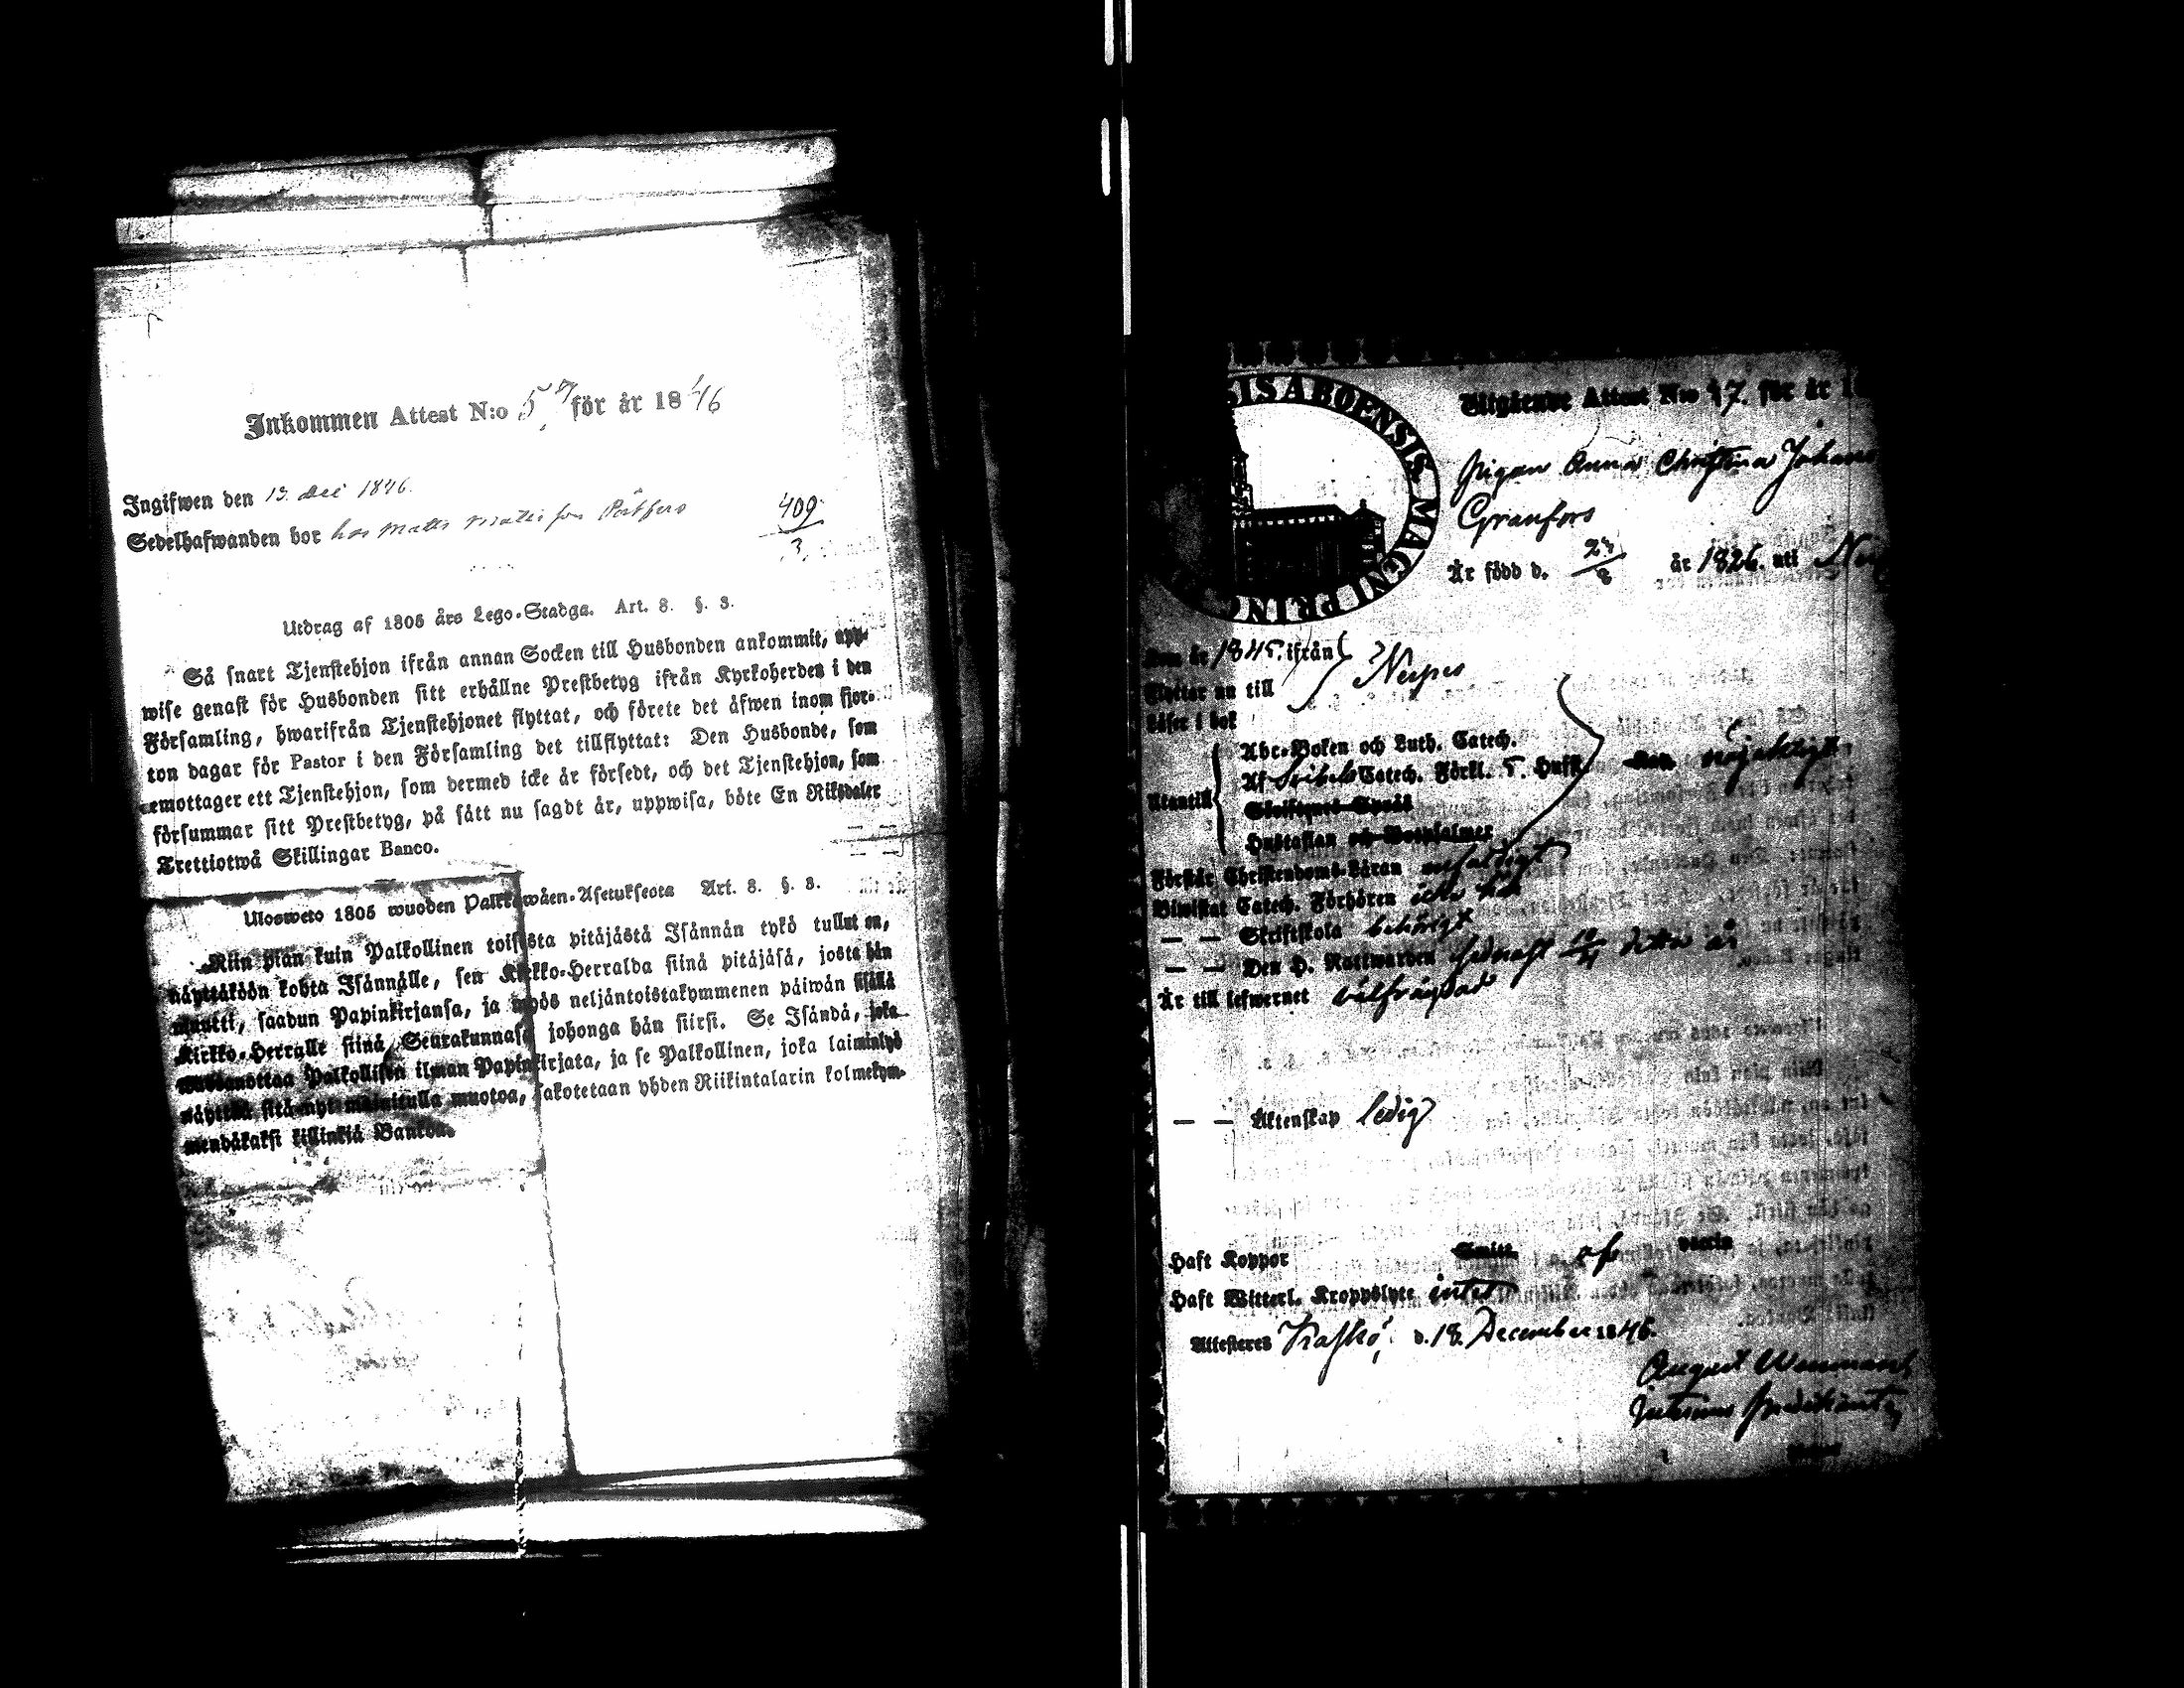 Inkommen Attest N:o 57 för år 1846
Ingifwen den 13. Dec 1846.
Sedelhafwanden bor hos Matts Mattsson Pörtfors
409
3.
Utdrag af 1805 års Lego-Stadga. Art. 8. §. 3.
Så snart Tjenstehjon ifrån annan Socken till Husbonden ankommit, upp-
wise genast för Husbonden sitt erhållne Prestbetyg ifrån Kyrkoherden i den
Församling, hwarifrån Tjenstehjonet flyttat, och förete det äfwen inom fjor-
ton dagar för Pastor i den Församling det tillflyttat: Den Husbonde, som
emottager ett Tjenstehjon, som dermed icke är försedt, och det Tjenstehjon, som
försummar sitt Prestbetyg, på sätt nu sagdt är, uppwisa, böte En Riksdaler
Trettiotwå Skillingar Banco.
Ulosweto 1805 wuoden Palkkawäen-Asetuksesta Art. 8. §. 3.
Niin pian kuin Palkollinen toisesta pitäjästä Isännän tykö tullut on,
näyttäköön kohta Isännälle, sen Kirkko-Herralda siinä pitäjäsä, josta hän
muutti, saadun Papinkirjansa, ja myös neljäntoistakymmenen päiwän sisällä
Kirkko-Herralle siinä Seurakunnasa johonga hän siirsi. Se Isändä, joka
wastaanottaa Palkollisen ilman Papinkirjata, ja se Palkollinen, joka laiminlyö
näyttää sitä nyt mainitulla muotoa, sakotetaan yhden Riikintalarin kolmekym-
mendäkaksi killinkiä Bankoa.
SIS ABOENSIS MAGNI PRINC
Utgående Attest N:o 17. för år 1
Pigan Anna Christina Johans
Granfors
Är född d. 28/8 år 1826. uti
Kom år 1845. ifrån
Flyttar nu till Nerpes
Läser i bok
Utantill
Abc-Boken och Luth. Catech.
Af Svibels Catech. Förkl. 5. Hufst nöjaktigt
Skriftenes Språk
Hustaflan och Botpsalmer
Förstår Christendoms-Läran enfaldigt
Biwistat Catech. Förhören icke här
— — Skriftskola behörigt
— — Den H. Nattwarden sednast detta år
Är till lefwernet välfrägdad
— — Äktenskap ledig
Haft Koppor Smitt af vaccin
Haft Witterl. Kroppslyte intet
Attesteras Kaskö, d. 18. December 1846.
August Wenman